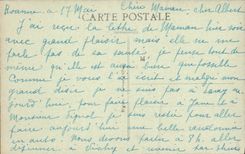 Roanne a 17 Mai Chère Maman, cher Albert
CARTE POSTALE
J'ai reçu la lettre de Maman hier soir
avec grand plaisir mais elle ne me
parle pas de sa santé je pense tout de
même qu'elle est aussi bien que possible
Comme je vous l'ai écrit et malgré mon
grand désir je ne suis pas à
jourd'hui, pour faire plaisir à Jane et à
Monsieur je suis restée pour aller
faire aujourd'hui une belle randonnée
en auto. Nous devons partir à 8h. aller
déjeuner à Vichy et revenir par